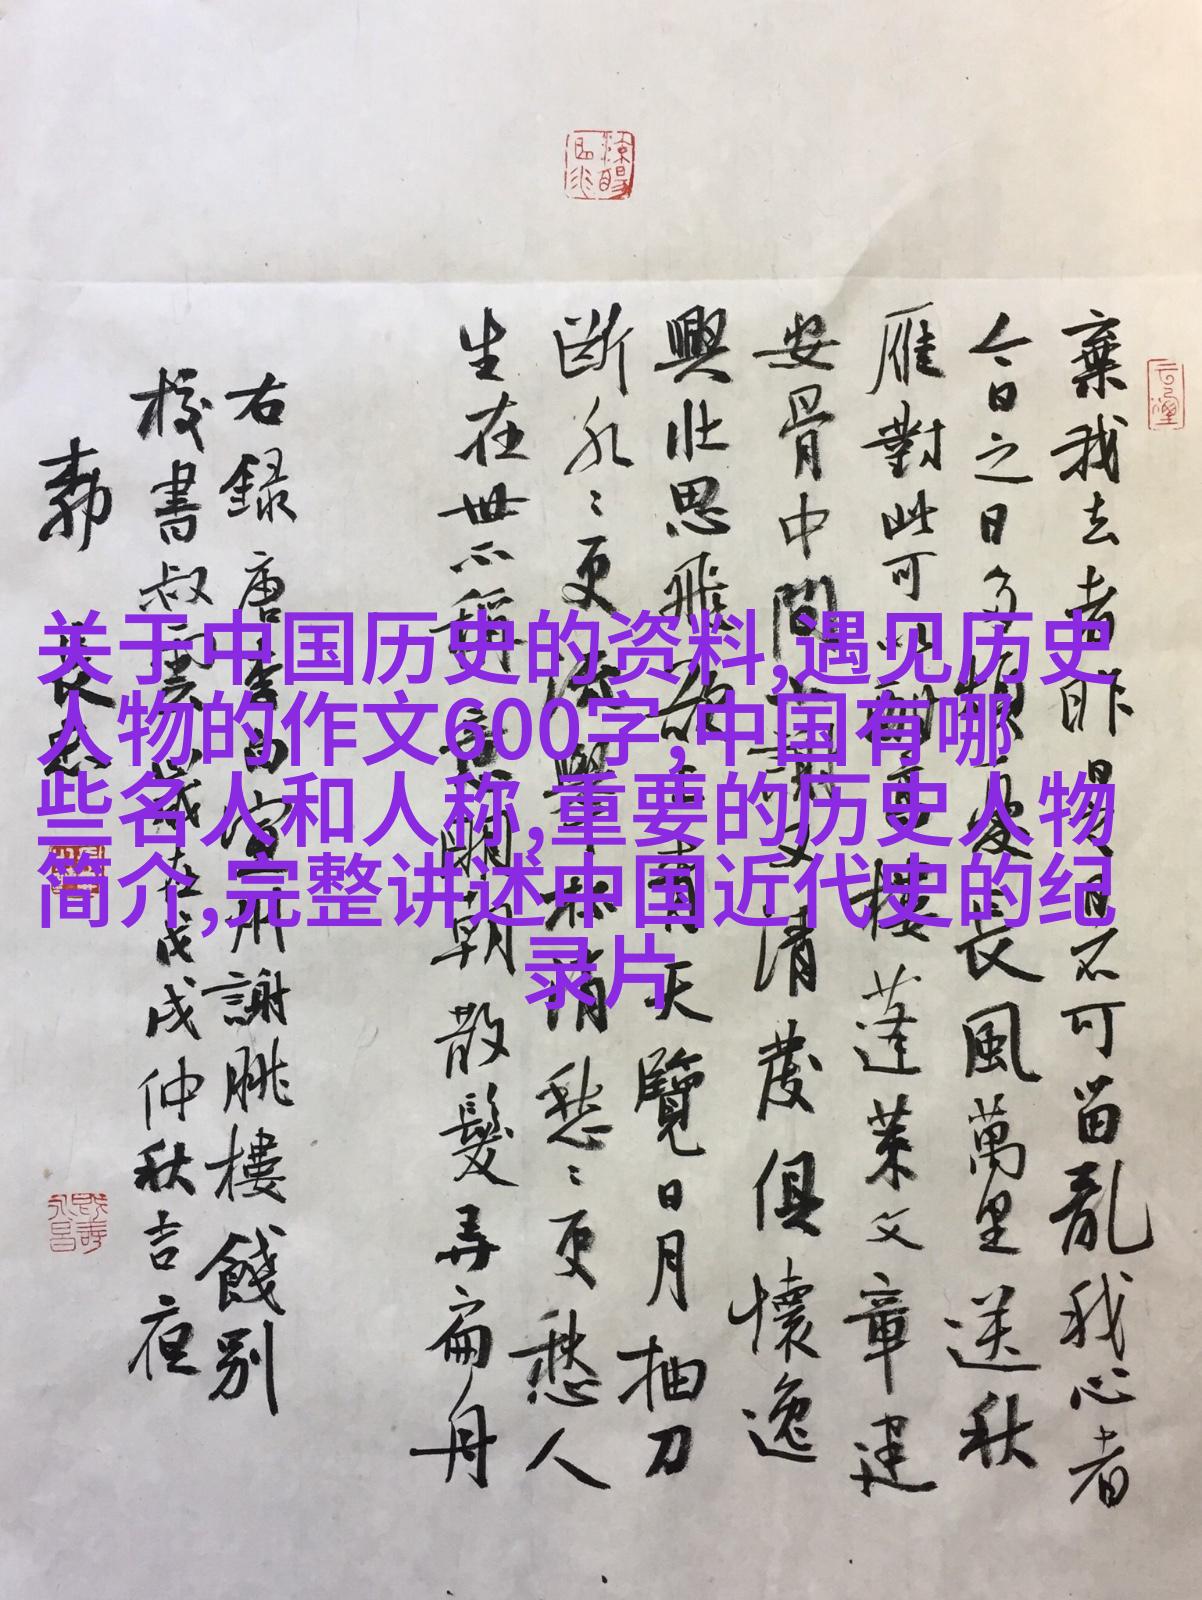 关于中国历史的资料,遇见历史
人物的作文600字,中国有哪
些名人和人称,重要的历史人物
简介,完整讲述中国近代史的纪
录片
棄我去者昨日之日不可留亂我心者
今日之日多煩憂長風萬里送秋
雁對此可以酣高樓蓬萊文章建
安骨中間小謝又清發俱懷逸
興壯思飛欲上青天覽日月抽刀
斷水々更流舉杯消愁々更愁人
生在世不稱意明朝散髮弄扁舟
右錄唐李白宣州謝朓樓餞別
校書叔雲歲在戊戌仲秋吉夜